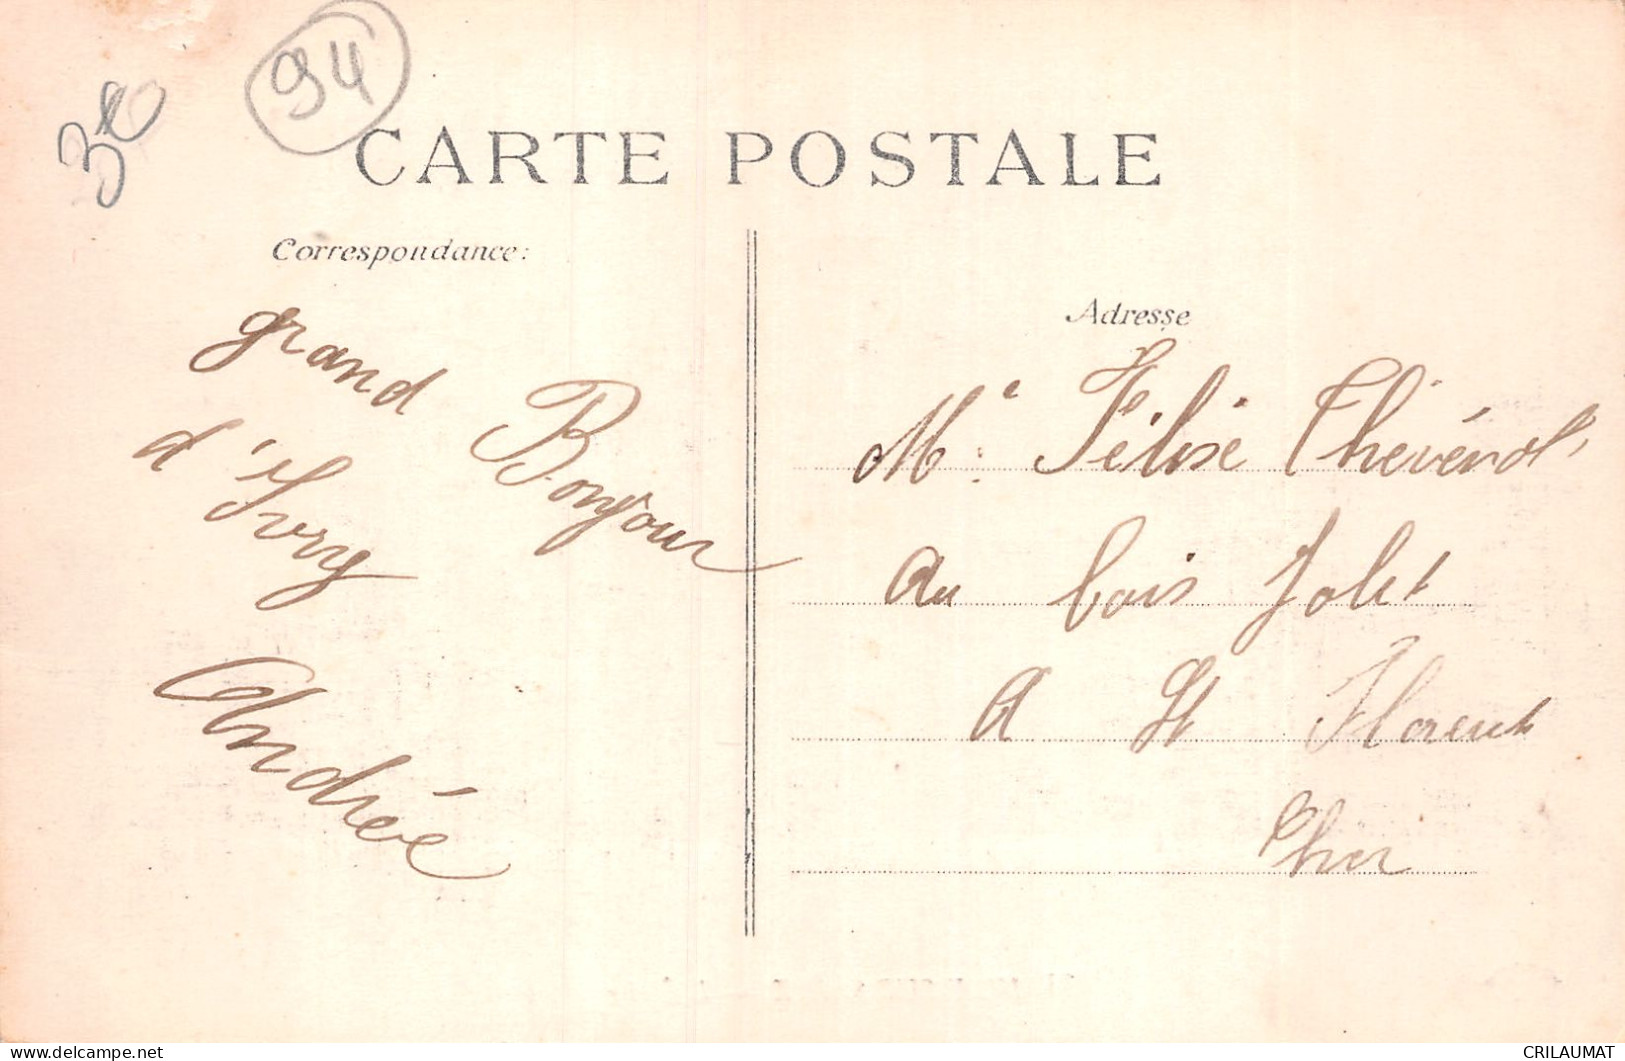 3e
94
CARTE POSTALE
Correspondance:
grand Bonjour
d'Ivry
Andrée
Adresse
Mr: Félise Thevénot
Au bois Jolit
A St Florent
Cher
CRILAUMAT